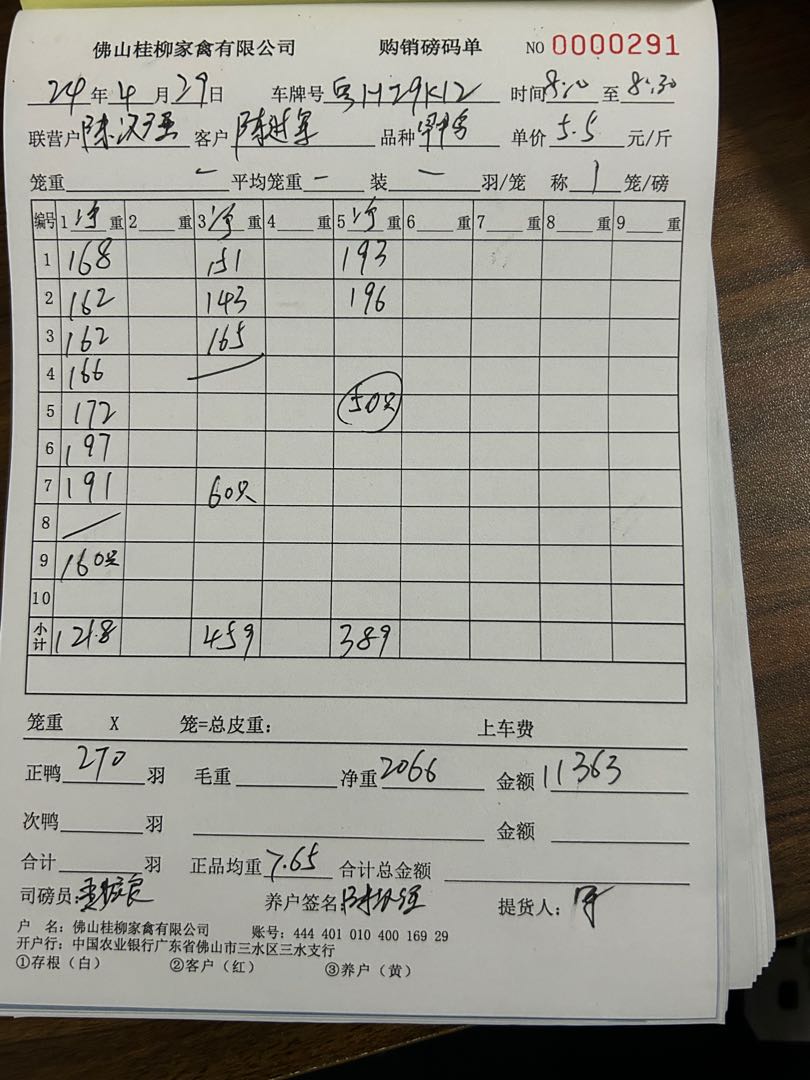 佛山桂柳家禽有限公司 购销磅码单 NO 0000291
24年4月29日 车牌号 H29K12 时间8:10至8:30
联营户陈汉强 客户陈进军 品种 单价5.5元/斤
笼重 一 平均笼重 一 装 一 羽/笼 称 1 笼/磅
编号 1净重 2重 3净重 4重 5净重 6重 7重 8重 9重
1 168 151 193
2 162 143 196
3 162 165
4 166
5 172 50只
6 197
7 191 60只
8
9 160只
10
小计 1218 459 389
笼重 X 笼=总皮重: 上车费
正鸭270羽 毛重 净重2066 金额11363
次鸭 羽 金额
合计 羽 正品均重7.65 合计总金额
司磅员: 养户签名:陈汉强 提货人:军
户 名: 佛山桂柳家禽有限公司 账号: 444 401 010 400 169 29
开户行: 中国农业银行广东省佛山市三水区三水支行
①存根(白) ②客户(红) ③养户(黄)